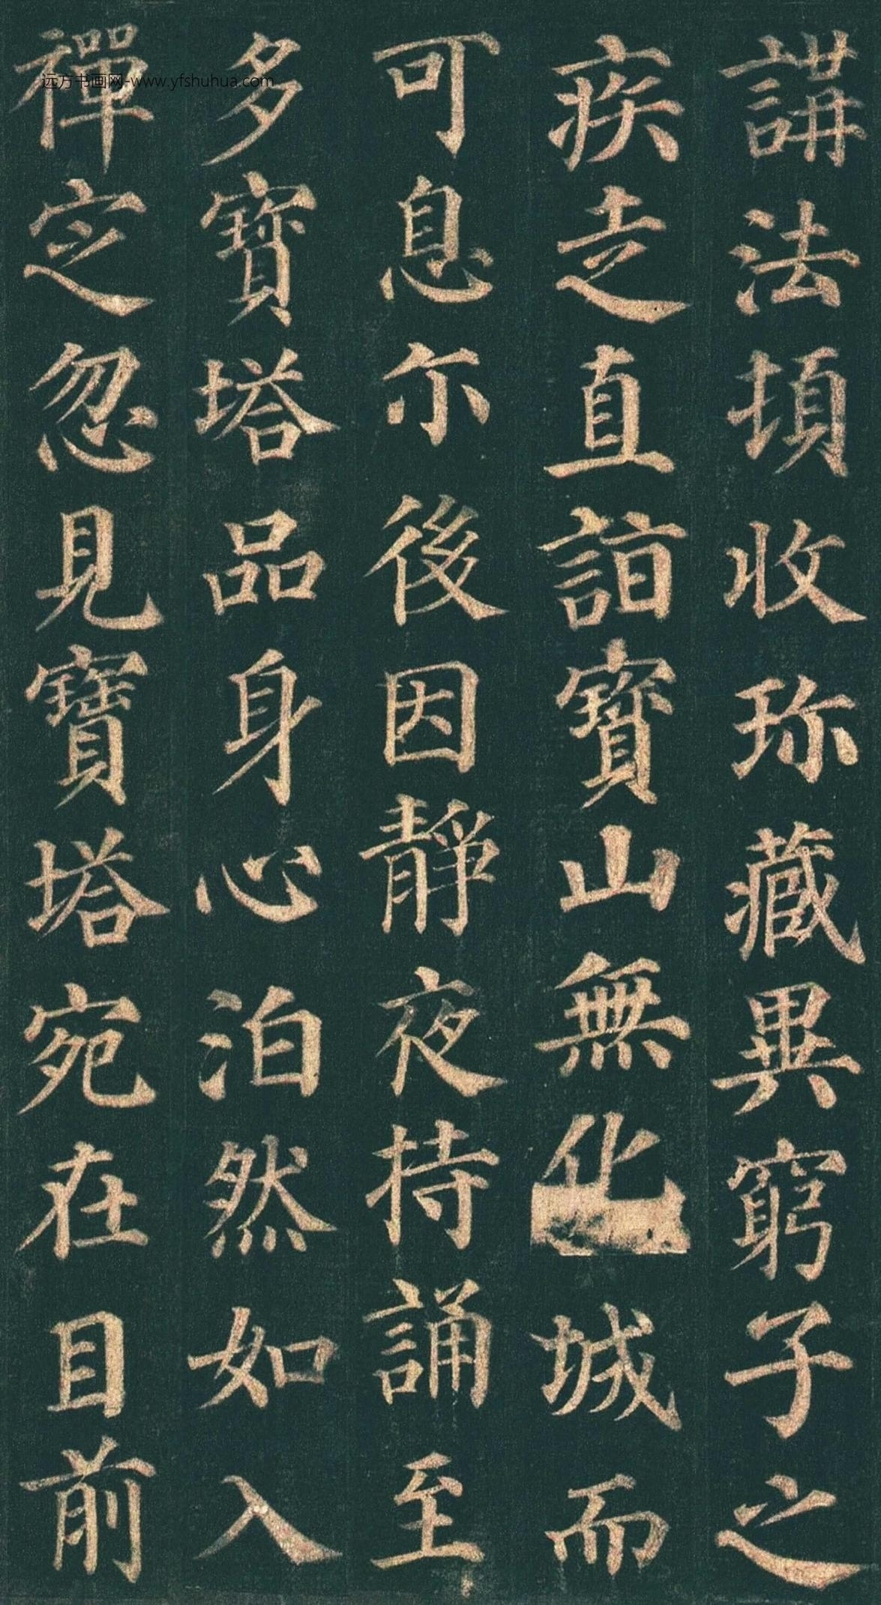 講法頓收珎藏異窮子之
疾走直詣寳山無化城而
可息尒後因靜夜持誦至
多寳塔品身心泊然如入
禪定忽見寳塔宛在目前
远方书画网-www.yfshuhua.com